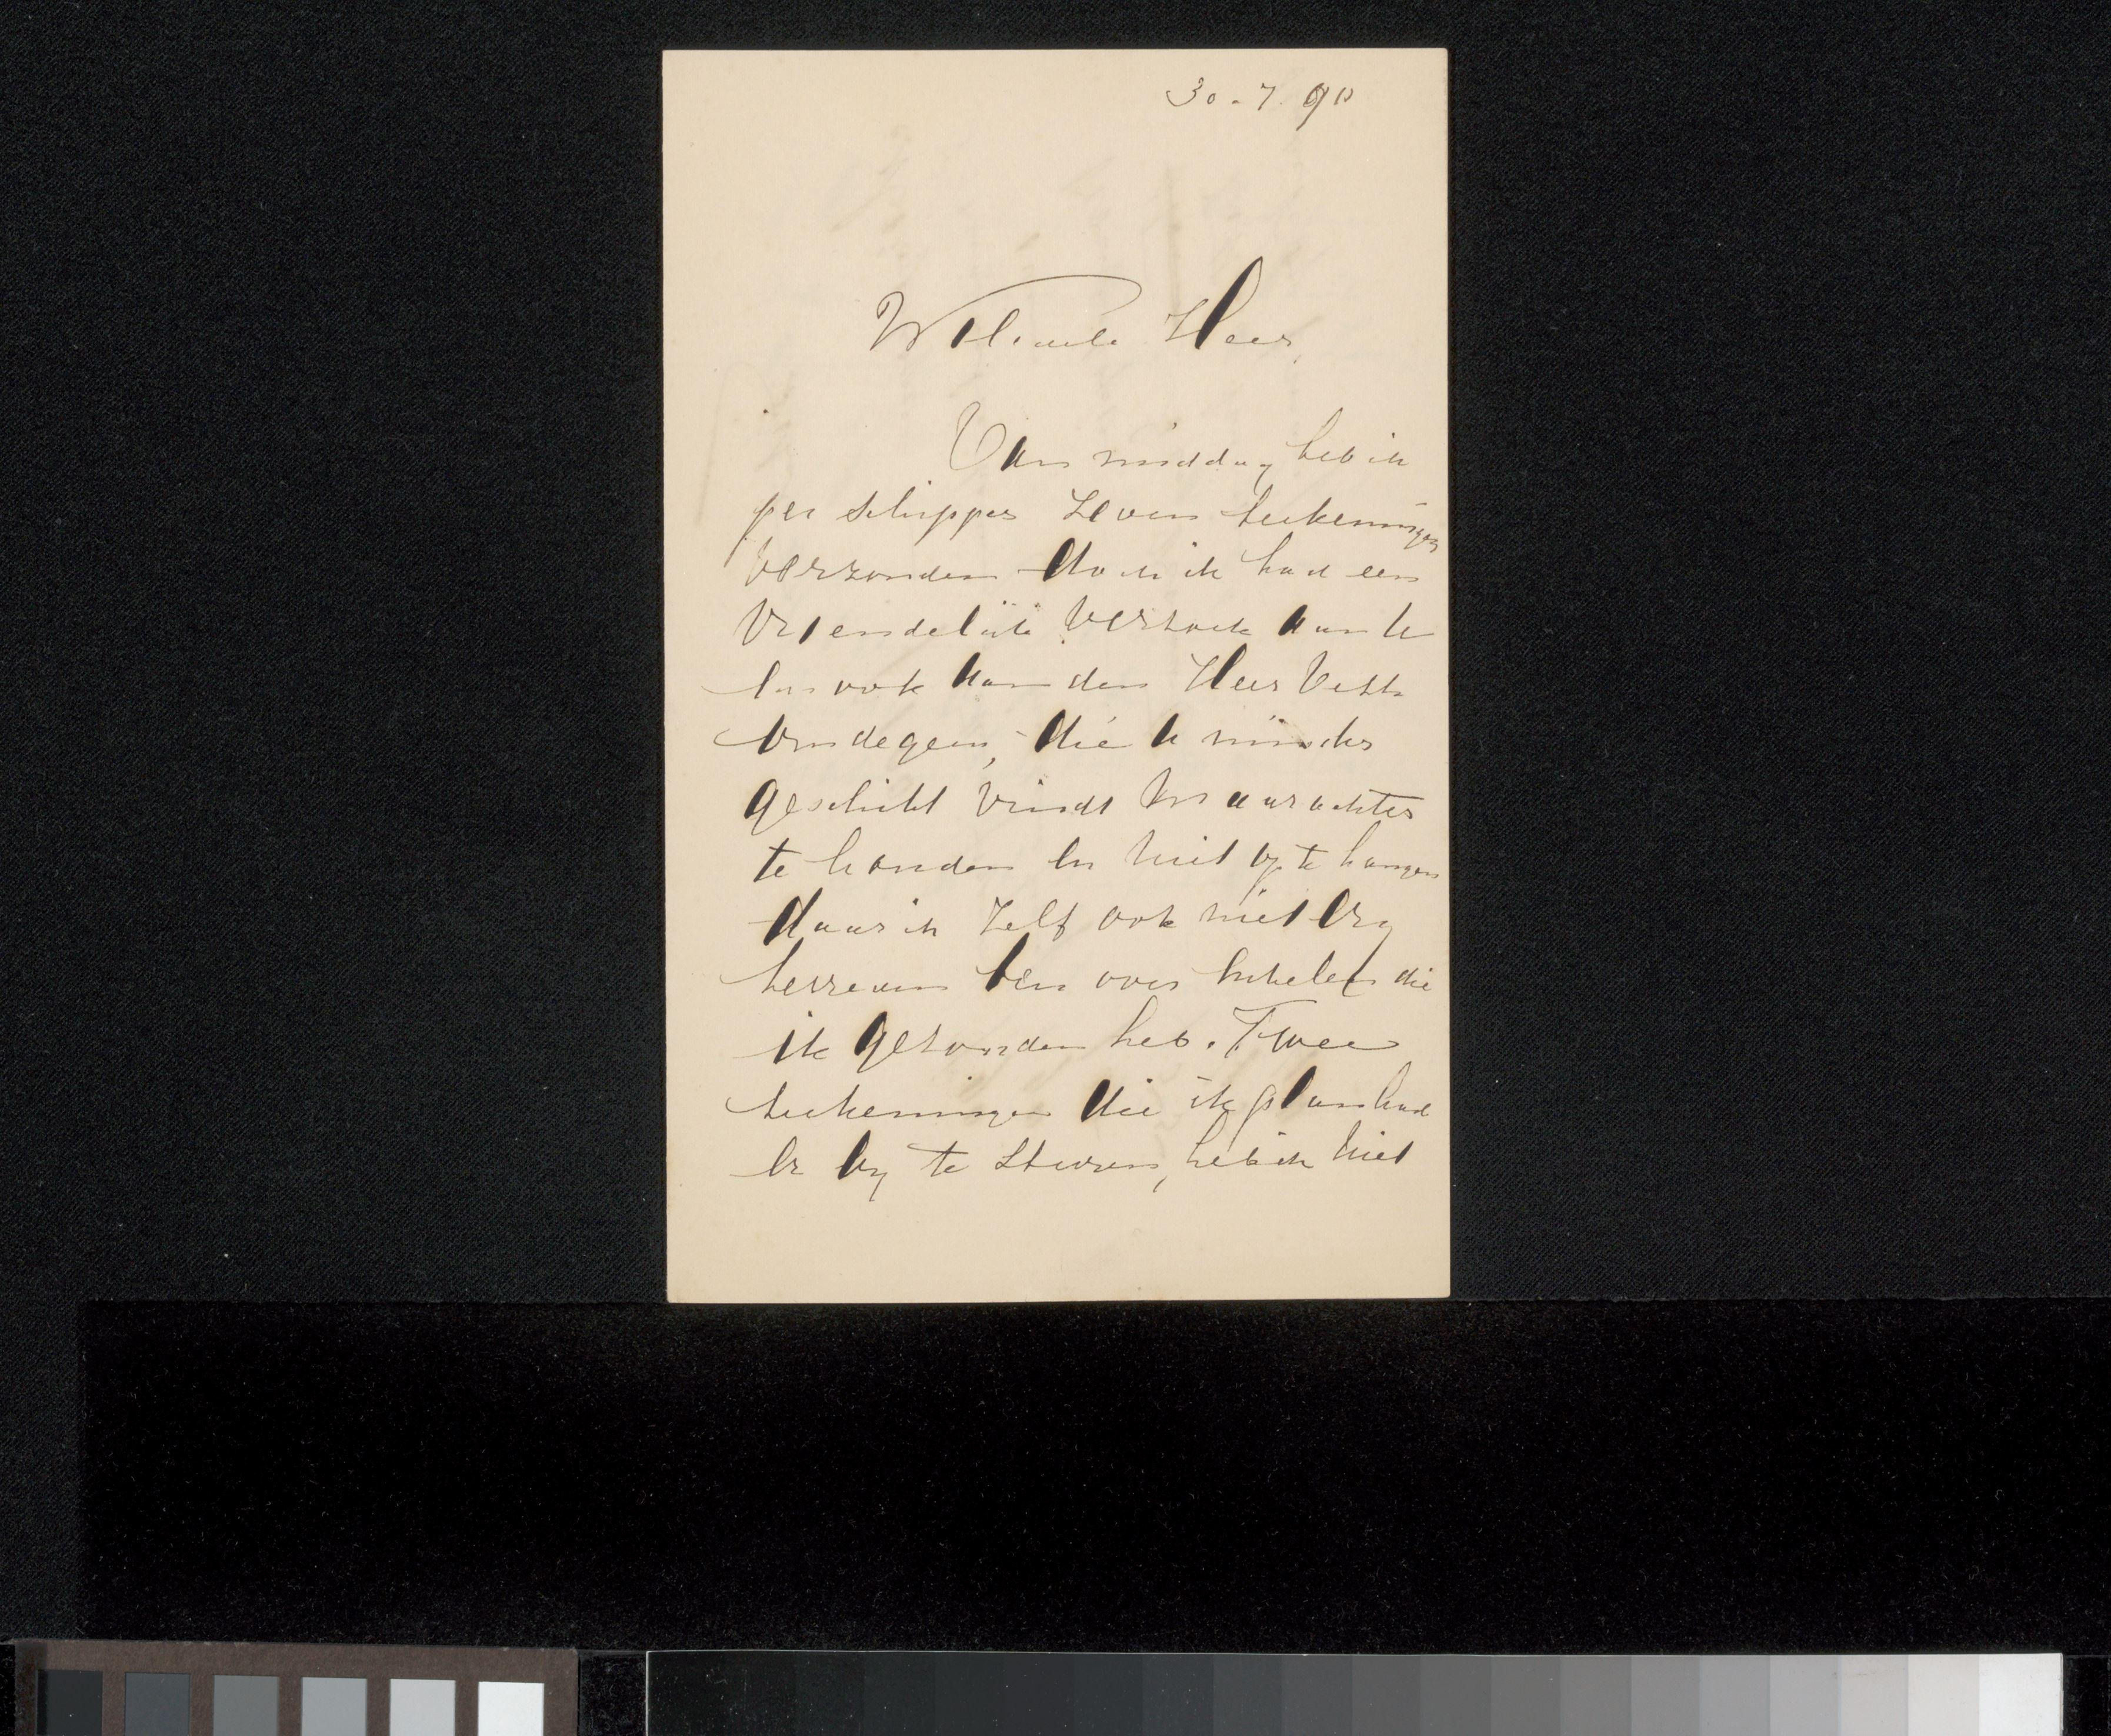 30.7.90
WelEdele Heer,
Van middag heb ik
per schipper zeven teekeningen
verzonden doch ik had een
vriendelijk verzoek aan U
en ook aan den Heer Veth
om degeen, die U minder
geschikt vindt maar achter
te houden en niet op te hangen
daar ik zelf ook niet erg
tevreden ben over enkelen die
ik gezonden heb. Twee
teekeningen die ik plan had
er by te sturen, heb ik niet